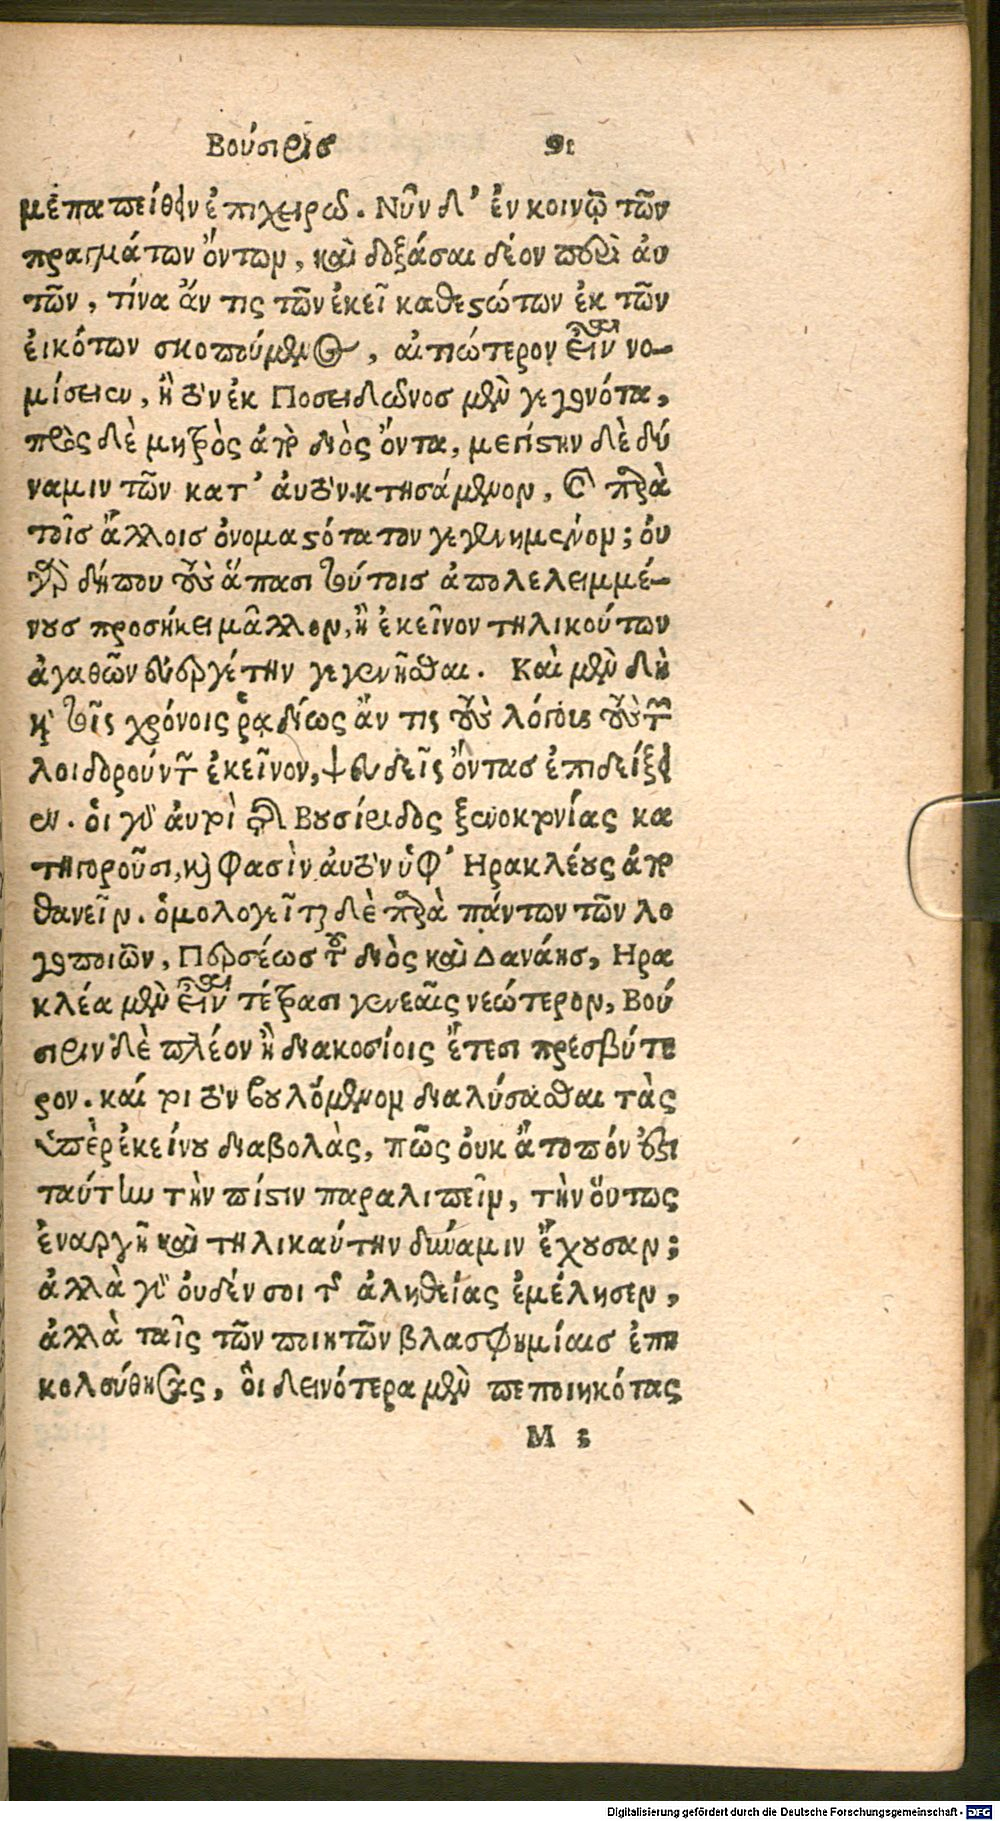 Βούσιρις 91
μεταπείθειν ἐπιχειρῶ. Νῦν δ’ ἐν κοινῷ τῶν
πραγμάτων ὄντων, καὶ δοξάσαι δέον περὶ αὐ
τῶν, τίνα ἄν τις τῶν ἐκεῖ καθεστώτων ἐκ τῶν
εἰκότων σκοπούμενος, αἰτιώτερον εἶναι νο-
μίσειεν, ἢ τὸν ἐκ Ποσειδῶνος μὲν γεγονότα,
πρὸς δὲ μητρὸς ἀπὸ διὸς ὄντα, μεγίστην δὲ δύ
ναμιν τῶν κατ’ αὐτὸν κτησάμενον, καὶ παρὰ
τοῖς ἄλλοις ὀνομαστότατον γεγενημένον; οὐ
γὰρ δήπου τοὺς ἅπασι τούτοις ἀπολελειμμέ-
νους προσήκει μᾶλλον, ἢ ἐκεῖνον τηλικούτων
ἀγαθῶν εὐεργέτην γεγενῆσθαι. Καὶ μὲν δὴ
καὶ τοῖς χρόνοις ῥᾳδίως ἄν τις τοὺς λόγους τοὺς τῶν
λοιδορούντων ἐκεῖνον, ψευδεῖς ὄντας ἐπιδείξει
εν. οἱ γὰρ αὐτοὶ τῆς Βουσίριδος ξενοκτονίας κα
τηγοροῦσι, καὶ φασὶν αὐτὸν ὑφ’ Ηρακλέους ἀπο
θανεῖν. ὁμολογεῖται δὲ παρὰ πάντων τῶν λο
γοποιῶν, Περσέως τοῦ διὸς καὶ Δανάης, Ηρα
κλέα μὲν εἶναι τέτρασι γενεαῖς νεώτερον, Βού
σιριν δὲ πλέον ἢ διακοσίοις ἔτεσι πρεσβύτε
ρον. καί τοι τὸν βουλόμενον διαλύσασθαι τὰς
ὑπὲρ ἐκείνου διαβολὰς, πῶς οὐκ ἄτοπόν ἐστι
ταύτην τὴν πίστιν παραλιπεῖν, τὴν οὕτως
ἐναργῆ καὶ τηλικαύτην δύναμιν ἔχουσαν;
ἀλλὰ γὰρ οὐδέν σοι τῆς ἀληθείας ἐμέλησεν,
ἀλλὰ ταῖς τῶν ποιητῶν βλασφημίαις ἐπη
κολούθησας, οἳ δεινότερα μὲν πεποιηκότας
M 3
Digitalisierung gefördert durch die Deutsche Forschungsgemeinschaft - DFG